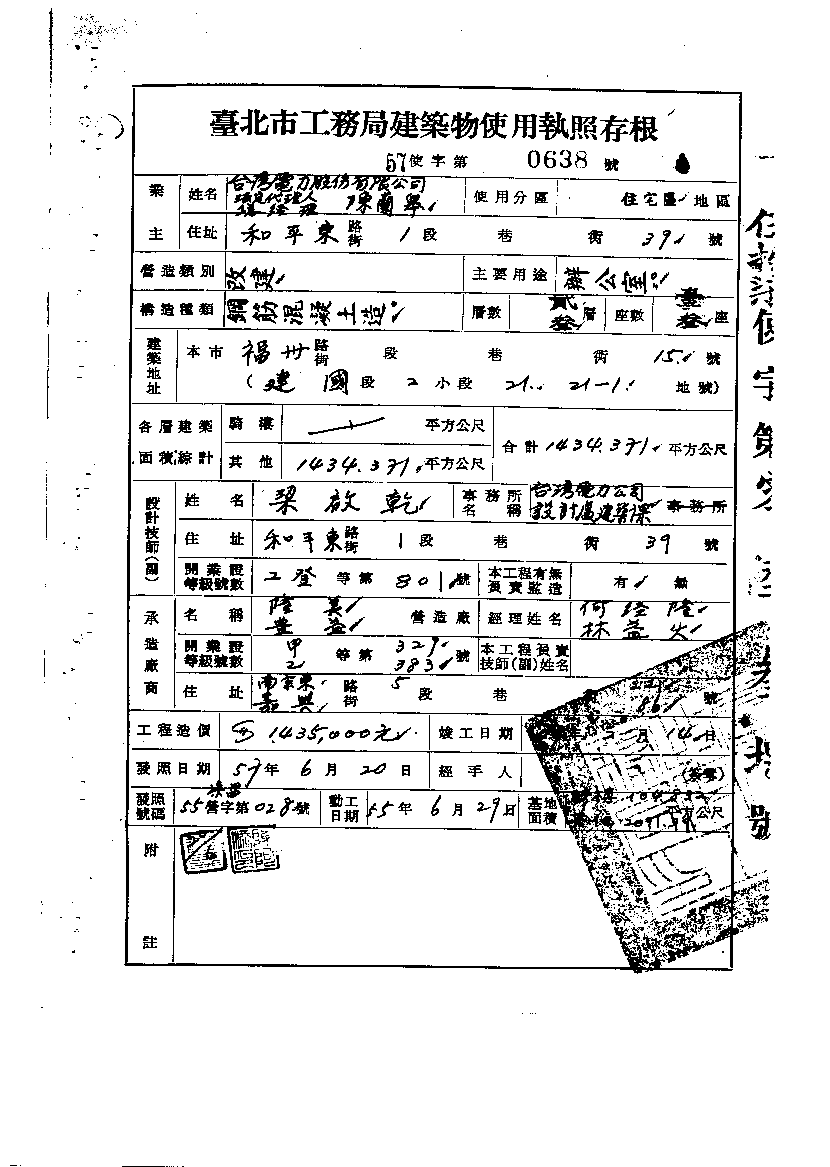 臺北市工務局建築物使用執照存根
57使字第 0638 號
業主 姓名 台灣電力股份有限公司 法定代理人 總經理 陳蘭皋 使用分區 住宅區 地區
住址 和平東 路街 1 段 巷 街 39 號
營造類別 改建 主要用途 辦公室
構造種類 鋼筋混凝土造 層數 貳 叁 層 座數 壹 叁 座
建築地址 本市 福州 路街 段 巷 街 15 號
(建國段 2 小段 21. 21-1. 地號)
各層建築面積綜計 騎樓 平方公尺 合計 1434.371 平方公尺
其他 1434.371 平方公尺
設計技師(副) 姓名 梁啟乾 事務所名稱 台灣電力公司 設計處建築課 事務所
住址 和平東 路街 1 段 巷 街 39 號
開業證等級號數 工登 等第 801 號 本工程有無負責監造 有 無
承造廠商 名稱 陸美 豊益 營造廠 經理姓名 何經陸 林益火
開業證等級號數 甲 乙 等第 329 383 號 本工程負責技師(副)姓名
住址 南京東 嘉興 路街 5 段 巷 號
工程造價 1,435,000元 竣工日期 年 2 月 14 日
發照日期 57 年 6 月 20 日 經手人
發照號碼 55 營字第 028 號 動工日期 55 年 6 月 29 日 基地面積 平方公尺
附註